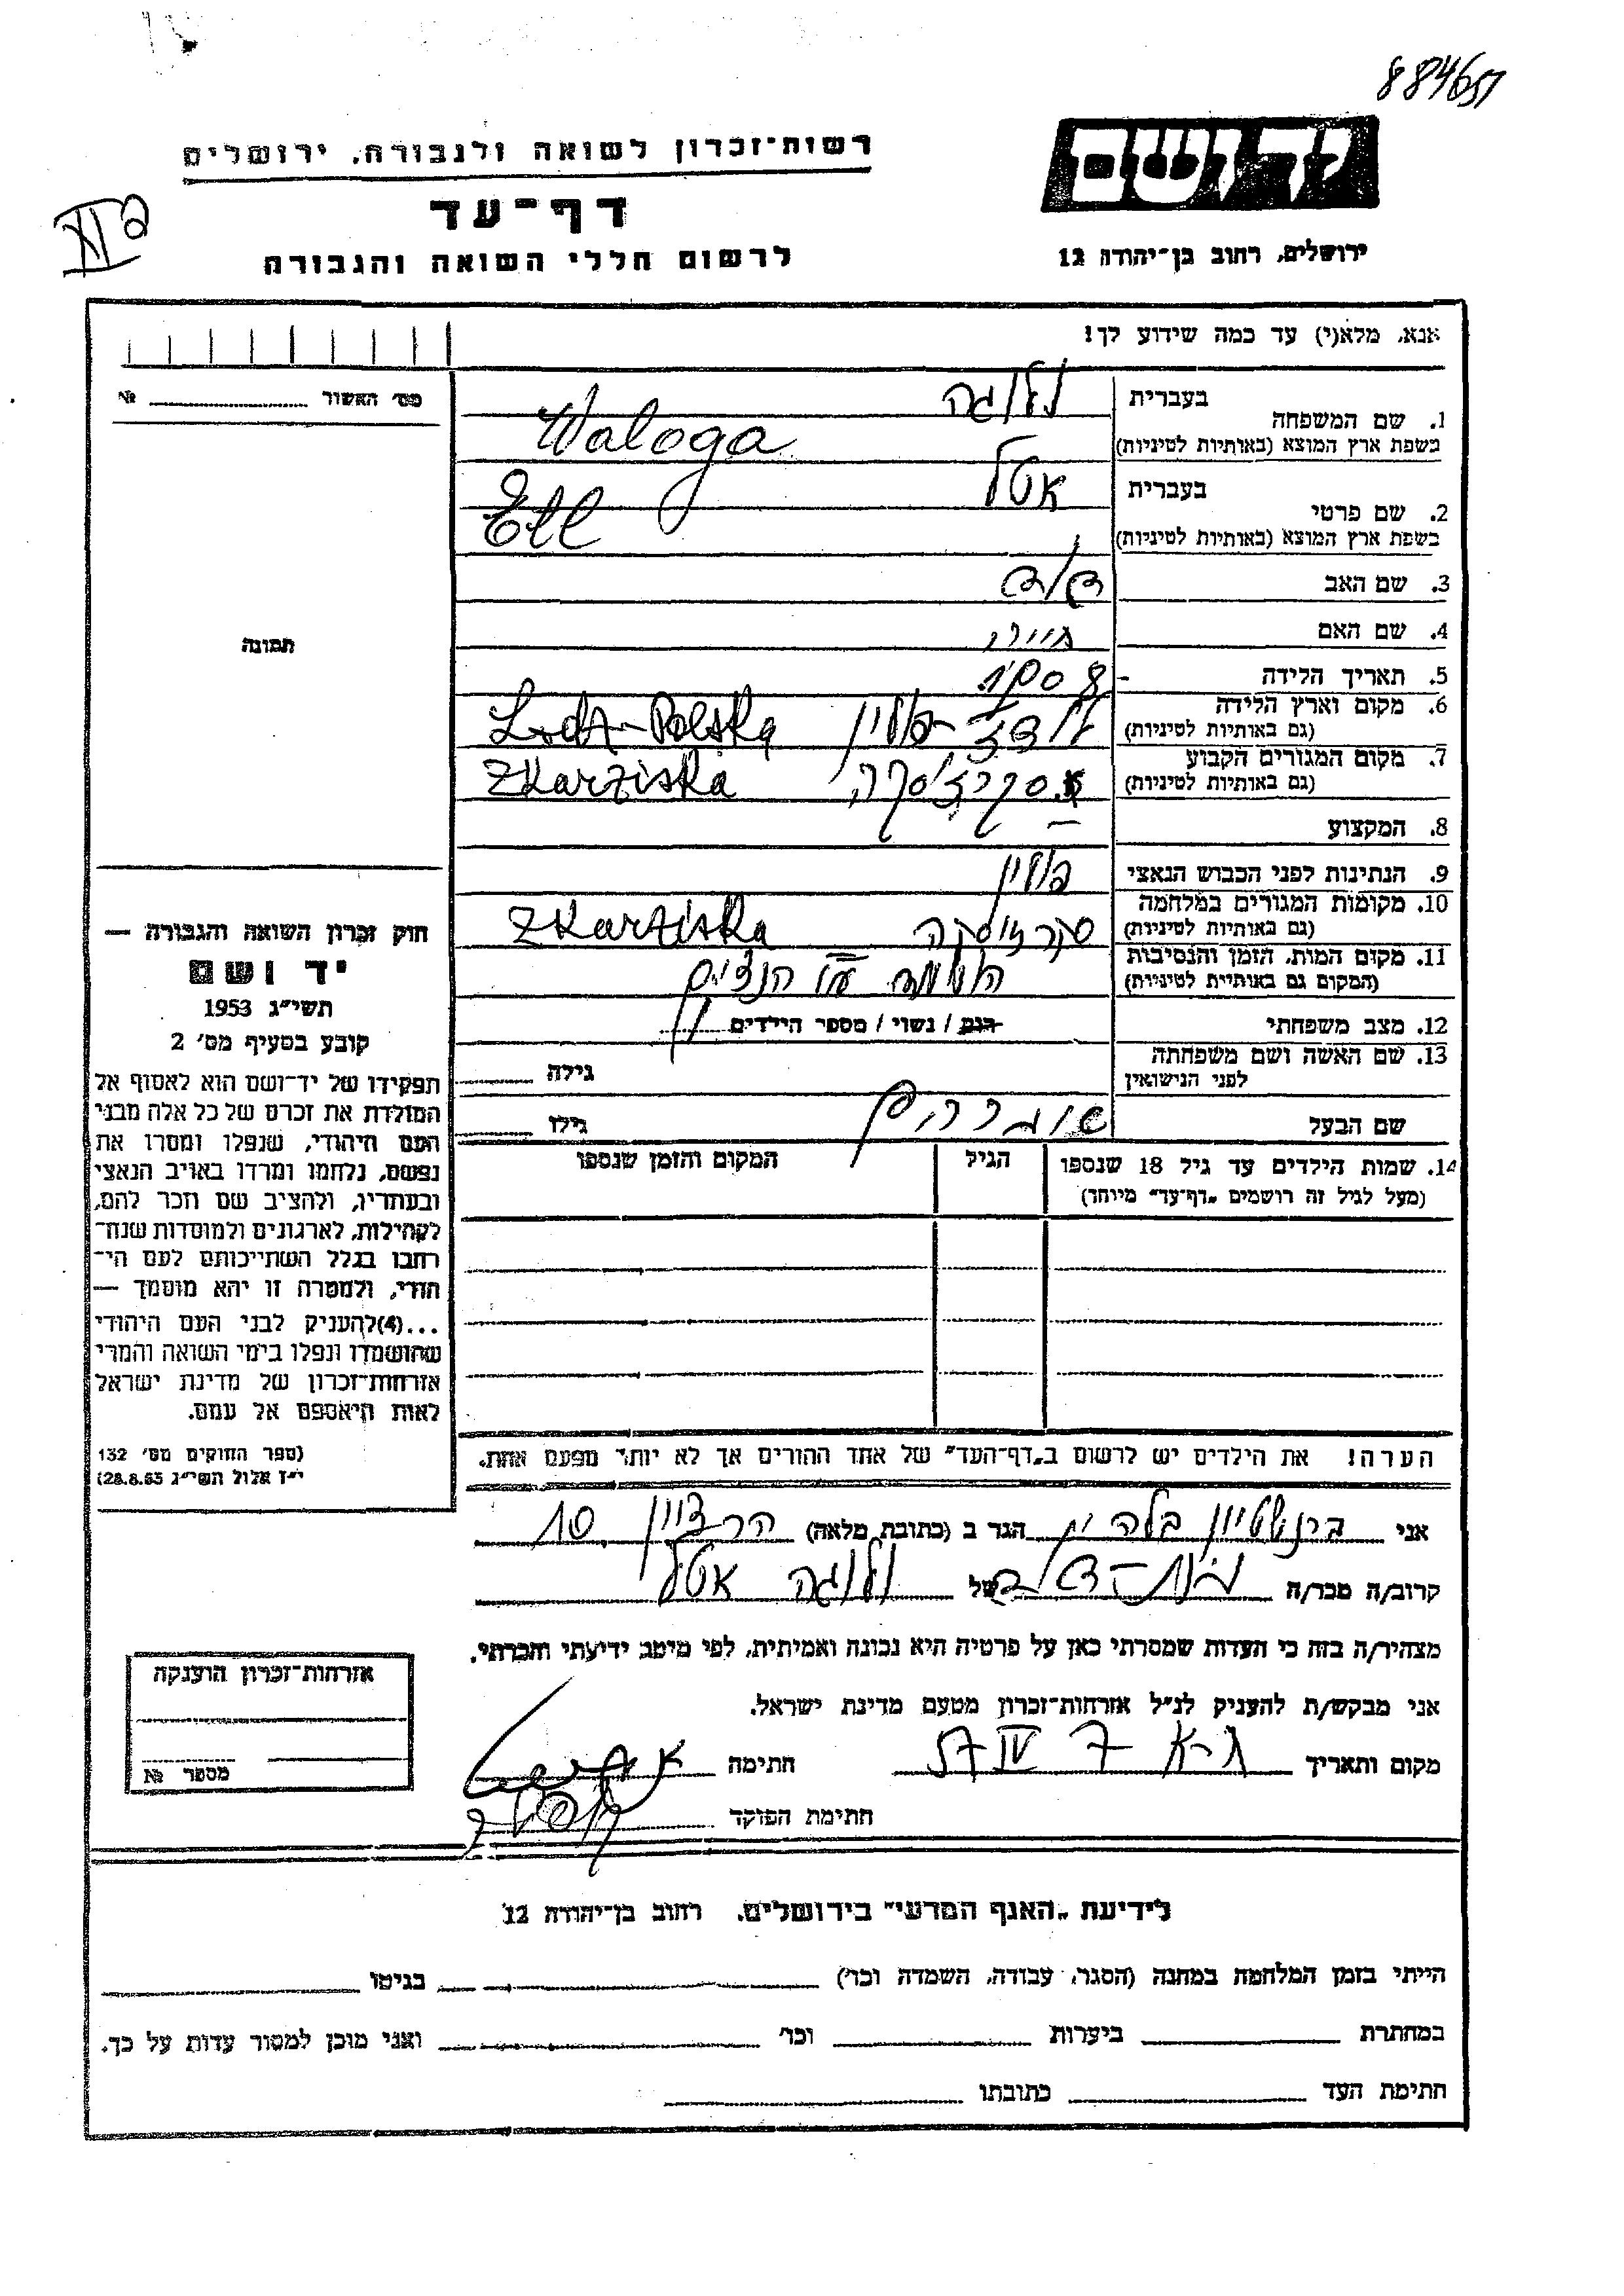 884651
רשות־זכרון לשואה ולגבורה, ירושלים
יד ושם
דף־עד
לרשום חללי השואה והגבורה
ירושלים, רחוב בן־יהודה 12
אנא, מלא(י) עד כמה שידוע לך!
מס׳ האשור № 
1. שם המשפחה בעברית ולוגה
בשפת ארץ המוצא (באותיות לטיניות) Waloga
2. שם פרטי בעברית אטל
בשפת ארץ המוצא (באותיות לטיניות) Etl
3. שם האב דוד
4. שם האם
תמונה
5. תאריך הלידה
6. מקום וארץ הלידה (גם באותיות לטיניות) לודז - פולין Lodz-Polska
7. מקום המגורים הקבוע (גם באותיות לטיניות) סקרז׳סקה Zkarziska
8. המקצוע —
9. הנתינות לפני הכבוש הנאצי פולין
10. מקומות המגורים במלחמה (גם באותיות לטיניות) סקרזיסקה Zkarziska
11. מקום המות, הזמן והנסיבות (המקום גם באותיות לטיניות) הושמד ע״י הנצים
12. מצב משפחתי רווק / נשוי / מספר הילדים
13. שם האשה ושם משפחתה לפני הנישואין גילה
שם הבעל גילו
14. שמות הילדים עד גיל 18 שנספו הגיל המקום והזמן שנספו
(מעל לגיל זה רושמים „דף־עד״ מיוחד)
חוק זכרון השואה והגבורה —
יד ושם
תשי״ג 1953
קובע בסעיף מס׳ 2
תפקידו של יד־ושם הוא לאסוף אל
המולדת את זכרם של כל אלה מבני
העם היהודי, שנפלו ומסרו את
נפשם, נלחמו ומרדו באויב הנאצי
ובעוזריו, ולהציב שם וזכר להם,
לקהילות, לארגונים ולמוסדות שנח־
רבו בגלל השתייכותם לעם הי־
הודי, ולמטרה זו יהא מוסמך —
...(4)להעניק לבני העם היהודי
שהושמדו ונפלו בימי השואה והמרי
אזרחות־זכרון של מדינת ישראל
לאות היאספם אל עמם.
(ספר החוקים מס׳ 132
י״ז אלול תשי״ג 28.8.53)
הערה! את הילדים יש לרשום ב„דף־העד״ של אחד ההורים אך לא יותר מפעם אחת.
אני ברנשטיין בלהית הגר ב (כתובת מלאה) הרצוין 10
קרוב/ה מכר/ה בת-דוד של ולוגה אטל
מצהיר/ה בזה כי העדות שמסרתי כאן על פרטיה היא נכונה ואמיתית, לפי מיטב ידיעתי והכרתי.
אני מבקש/ת להעניק לנ״ל אזרחות־זכרון מטעם מדינת ישראל.
מקום ותאריך ת-א 7 IV 57 חתימה
חתימת הפוקד
אזרחות־זכרון הוענקה
מספר №
לידיעת „האגף המדעי״ בירושלים, רחוב בן־יהודה 12
הייתי בזמן המלחמה במחנה (הסגר, עבודה, השמדה וכו׳) בגיטו
במחתרת ביערות וכו׳ ואני מוכן למסור עדות על כך.
חתימת העד כתובתו